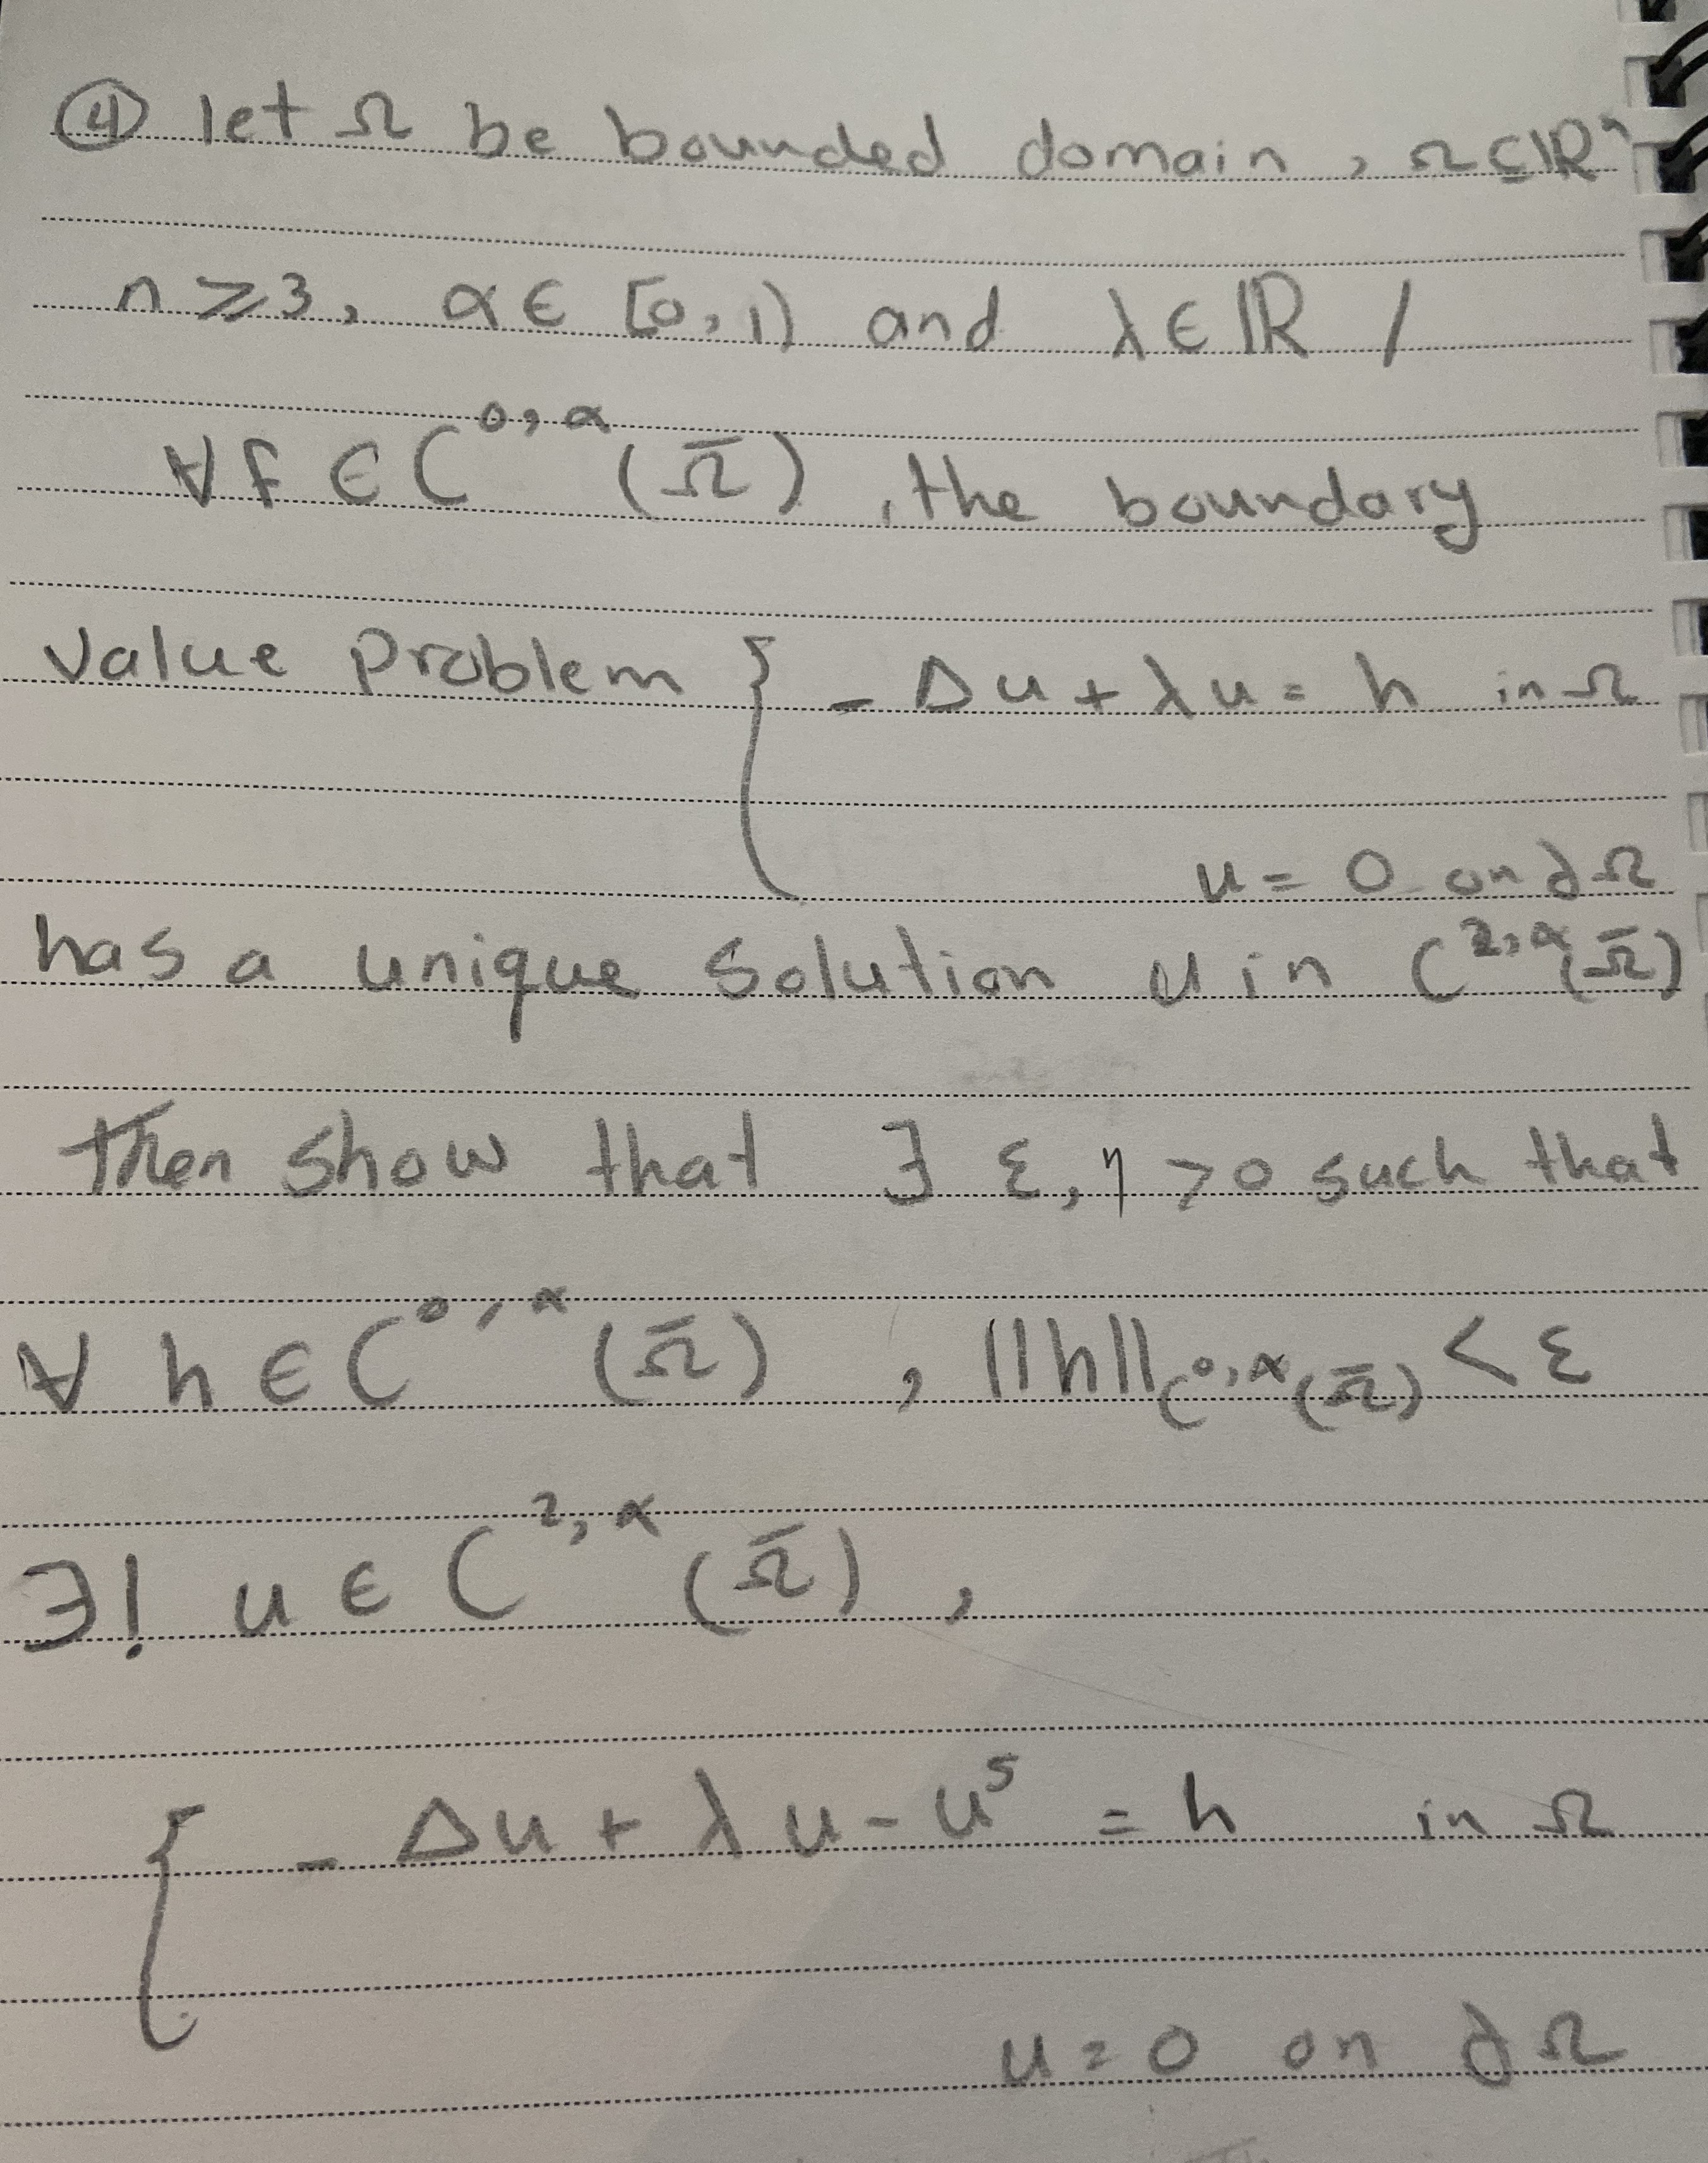 ④ let Ω be bounded domain, Ω⊆ℝⁿ
n ≥ 3, α ∈ [0,1) and λ ∈ ℝ /
∀ f ∈ C^{0,α}(Ω̄), the boundary
Value Problem { - Δu + λu = h in Ω
u = 0 on ∂Ω
has a unique solution u in C^{2,α}(Ω̄)
Then show that ∃ ε, η > 0 such that
∀ h ∈ C^{0,α}(Ω̄), ||h||_{C^{0,α}(Ω̄)} < ε
∃! u ∈ C^{2,α}(Ω̄),
{ - Δu + λu - u⁵ = h in Ω
u = 0 on ∂Ω